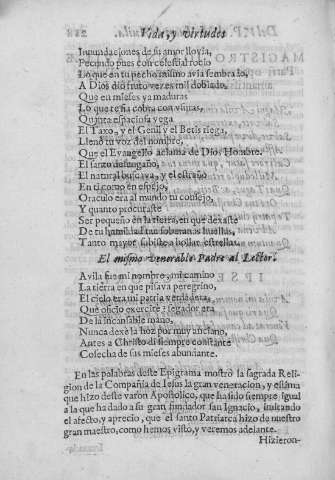 Vida, y virtudes
Inundaciones de su amor llovia,
Fecundo pues con celestial rocio
Lo que en tu pecho mismo avia sembrado,
A Dios dio fruto vezes mil doblado,
Que en mieses ya maduras
Lo que te fia cobra con vsuras,
Quanta espaciosa vega
El Taxo, y el Genil y el Betis riega,
Llenò tu voz del nombre,
Que el Evangelio aclama de Dios Hombre.
El santo desengaño,
El natural buscava, y el estraño
En ti como en espejo,
Oraculo era al mundo tu consejo,
Y quanto procuraste
Ser pequeño en la tierra, en que dexaste
De tu humildad tan soberanas huellas,
Tanto mayor subiste a hollar estrellas.
El mismo venerable Padre al Lector.
Avila fue mi nombre, mi camino
La tierra en que pisava peregrino,
El cielo era mi patria verdadera,
Què oficio exercitè? segador era
De la incansable mano,
Nunca dexè la hoz por muy anciano,
Antes a Christo di siempre constante
Cosecha de sus mieses abundante.
En las palabras deste Epigrama mostrò la sagrada Reli-
gion de la Compañia de Iesus la gran veneracion, y estima
que hizo deste varon Apostolico, que ha sido siempre igual
a la que ha dado a su gran fundador san Ignacio, imitando
el afecto, y aprecio, que el santo Patriarca hizo de nuestro
gran maestro, como hemos visto, y veremos adelante.
Hizieron-